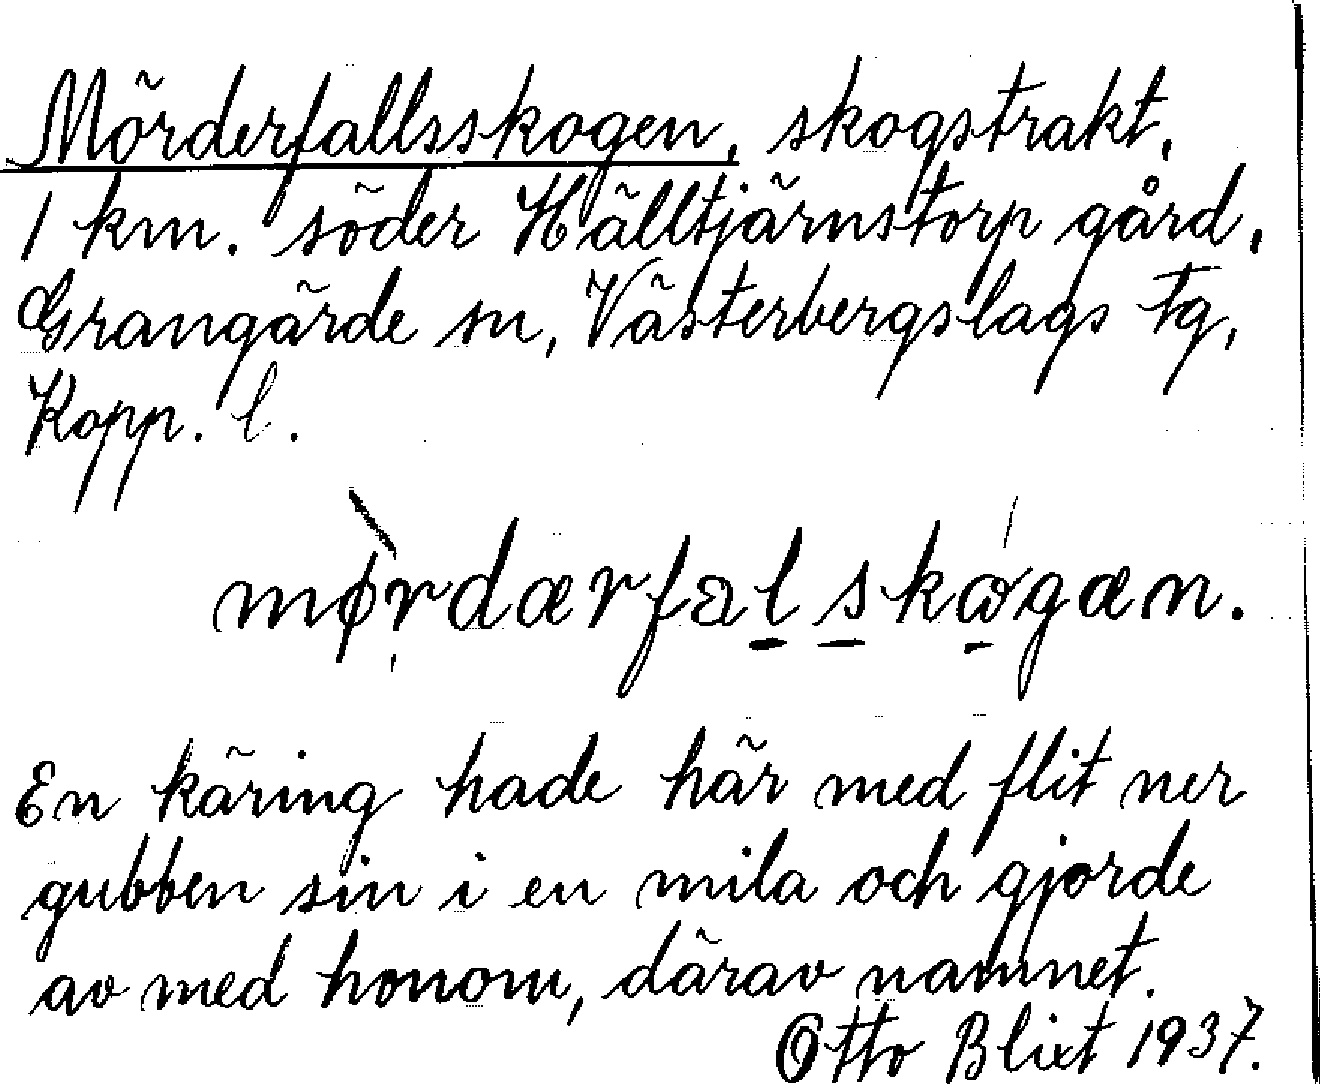 Mörderfallsskogen, skogstrakt,
1 km. söder Hälltjärnstorp gård,
Grangärde sn, Västerbergslags tg,
Kopp. l.
mørdærfalskogæn.
En käring hade här med flit ner
gubben sin i en mila och gjorde
av med honom, därav namnet.
Otto Blixt 1937.